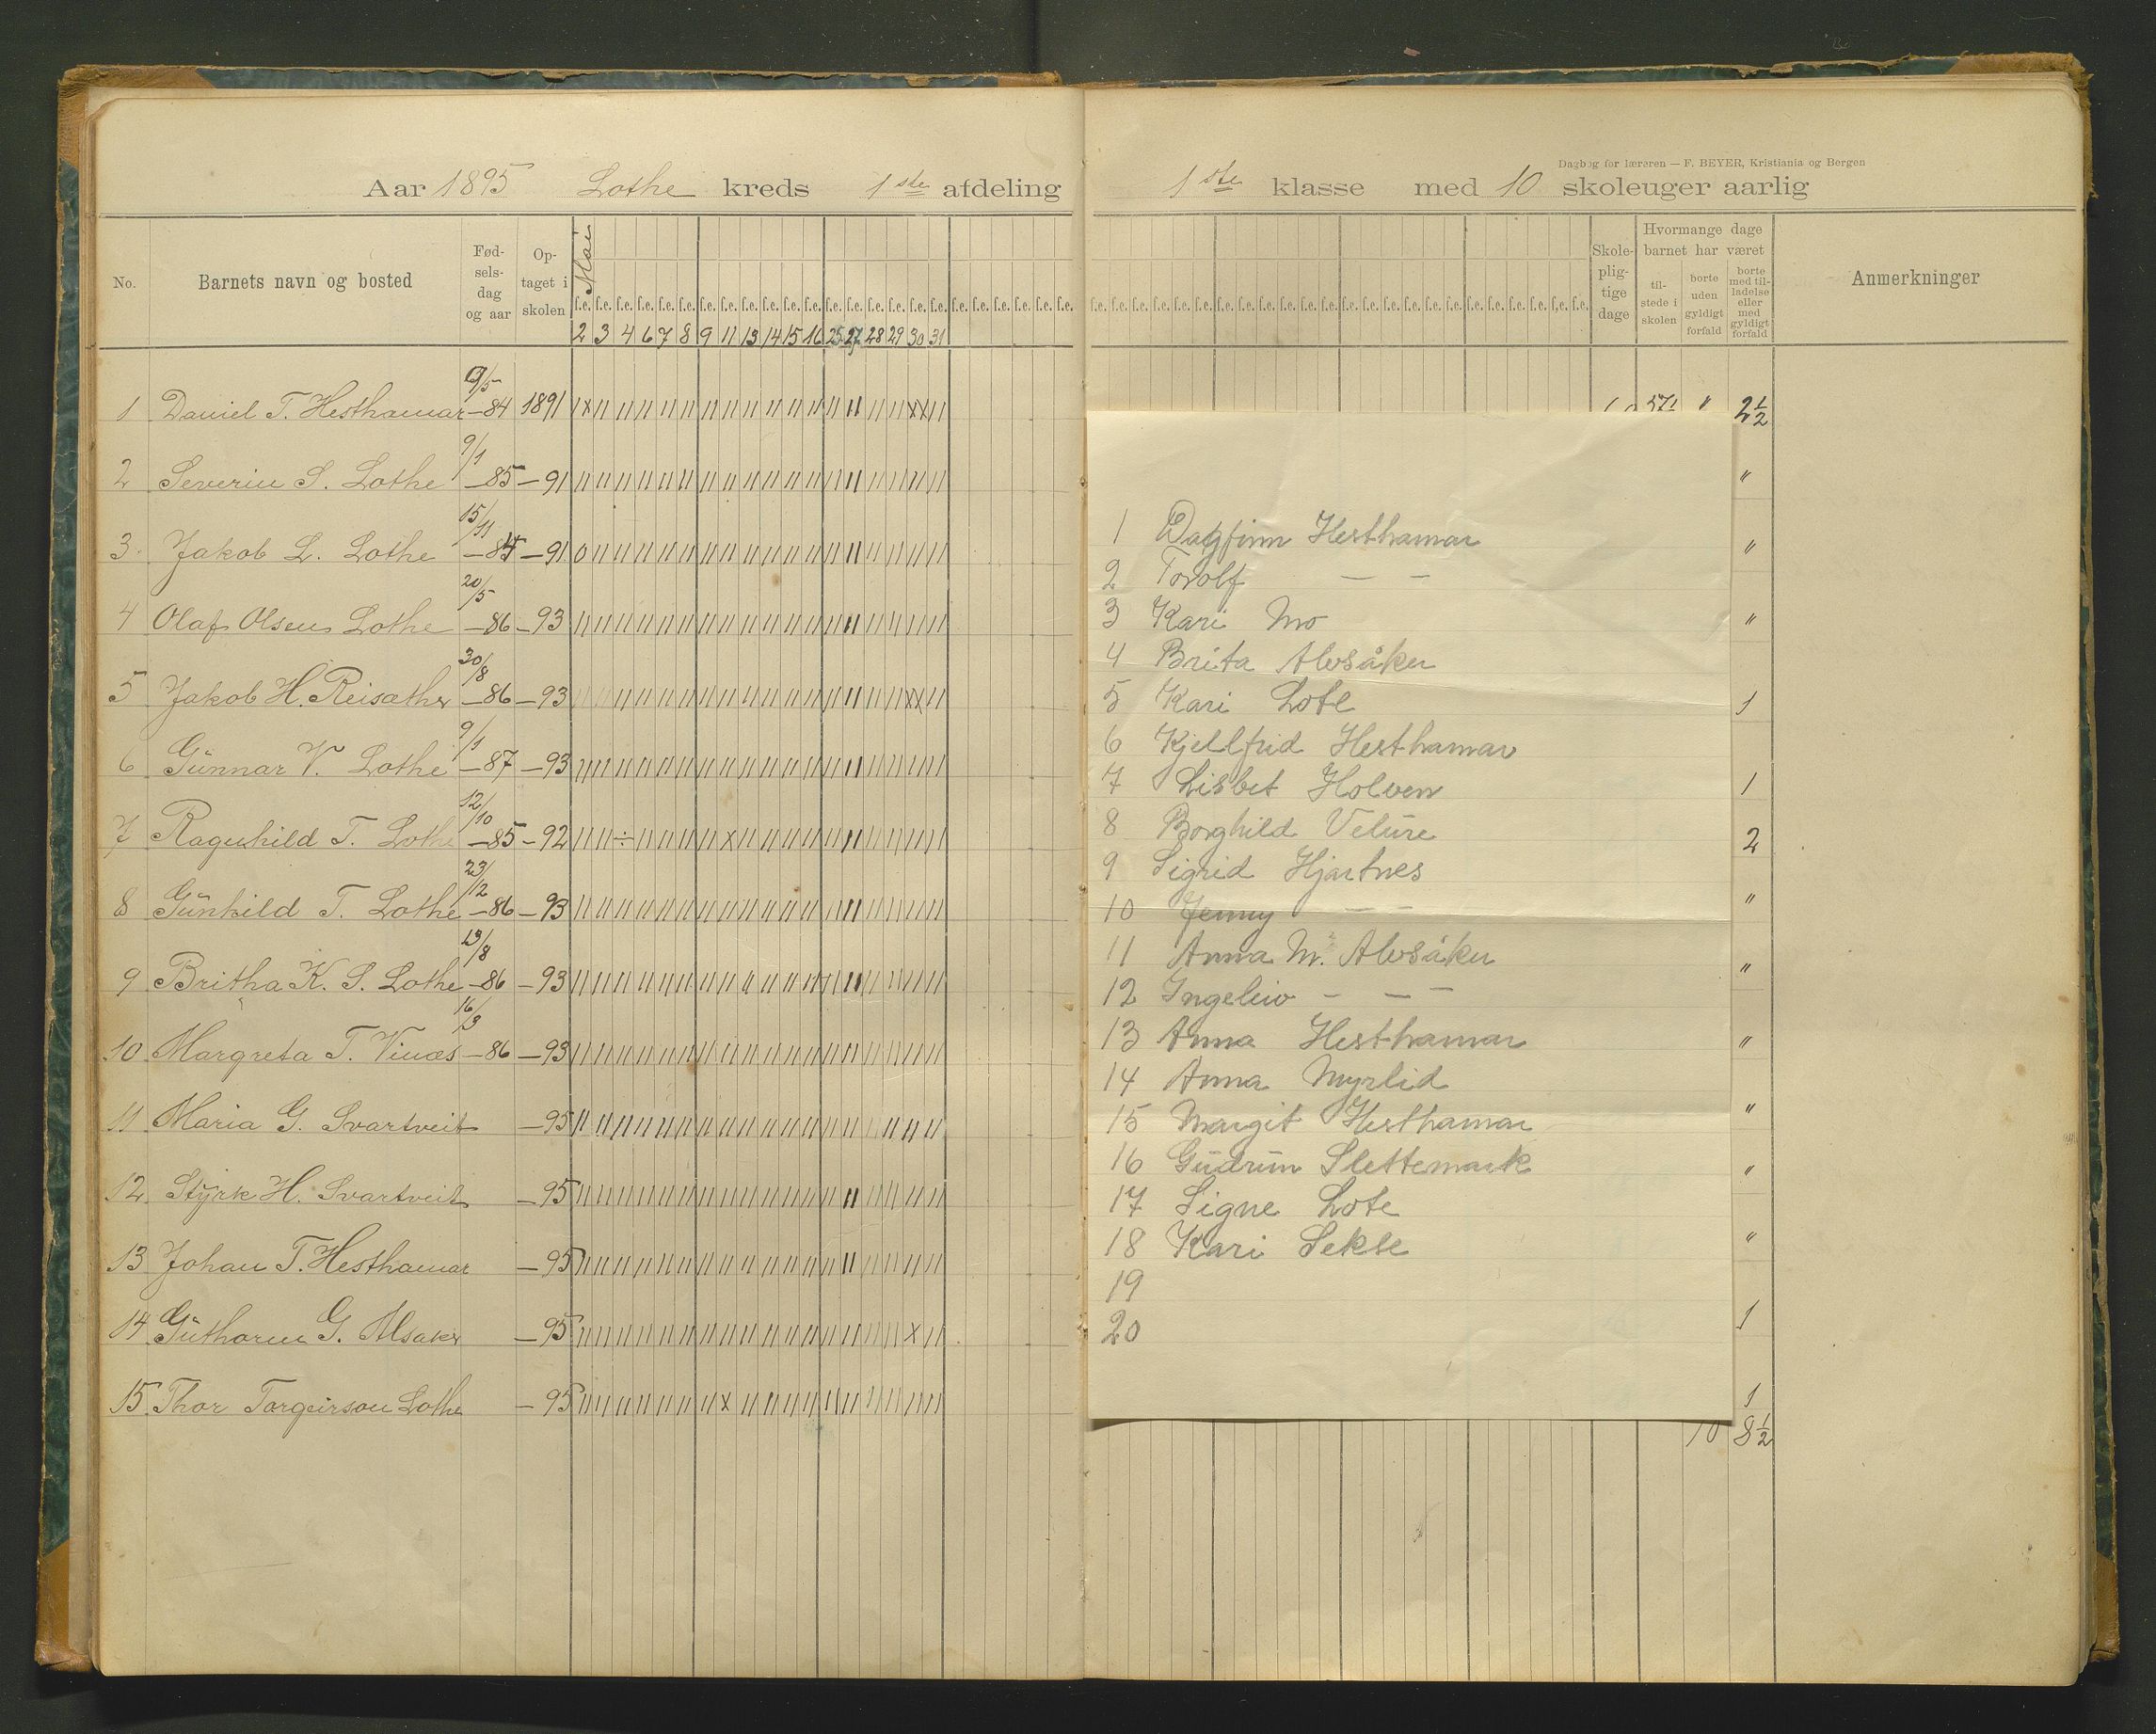 Dagbog for læreren — F. BEYER, Kristiania og Bergen
Aar 1895 Lothe kreds 1ste afdeling
1ste klasse med 10 skoleuger aarlig
No.
Barnets navn og bosted
Fød-
sels-
dag
og aar
Op-
taget i
skolen
Mai
f.e. f.e. f.e. f.e. f.e. f.e. f.e. f.e. f.e. f.e. f.e. f.e. f.e. f.e. f.e. f.e. f.e. f.e. f.e. f.e. f.e. f.e. f.e. f.e.
2 3 4 6 7 8 9 11 13 14 15 16 25 27 28 29 30 31
Skole-
plig-
tige
dage
Hvormange dage
barnet har været
til-
stede i
skolen
borte
uden
gyldigt
forfald
borte
med til-
ladelse
eller
med
gyldigt
forfald
Anmerkninger
1 Daniel T. Hesthamar 9/5 —84 1891
2 Severin S. Lothe 9/1 —85 —91
3 Jakob L. Lothe 15/11 —84 —91
4 Olaf Olsen Lothe 20/5 —86 —93
5 Jakob H. Reisæther 30/8 —86 —93
6 Günnar V. Lothe 9/1 —87 —93
7 Ragnhild T. Lothe 12/10 —85 —92
8 Günhild T. Lothe 23/12 —86 —93
9 Britha K. S. Lothe 13/8 —86 —93
10 Margreta T. Vinæs 16/3 —86 —93
11 Maria G. Svartveit —95
12. Styrk H. Svartveit —95
13 Johan T. Hesthamar —95
14 Güthorm G. Alsaker —95
15. Thor Torgeirson Lothe —95
" 2½
"
"
"
1
1
2
"
"
"
"
"
"
1
1
10 8½
1 Dagfinn Hesthamar
2 Torolf — —
3 Kari Mo
4 Brita Alvsåker
5 Kari Lote
6 Kjellfrid Hesthamar
7 Lisbet Holven
8 Borghild Velüre
9 Sigrid Hjartnes
10 Jenny — —
11 Anna M. Alvsåker
12 Ingeleiv — — —
13 Anna Hesthamar
14 Anna Myrlid
15 Margit Hesthamar
16 Güdrün Slettemark
17 Signe Lote
18 Kari Sekse
19
20